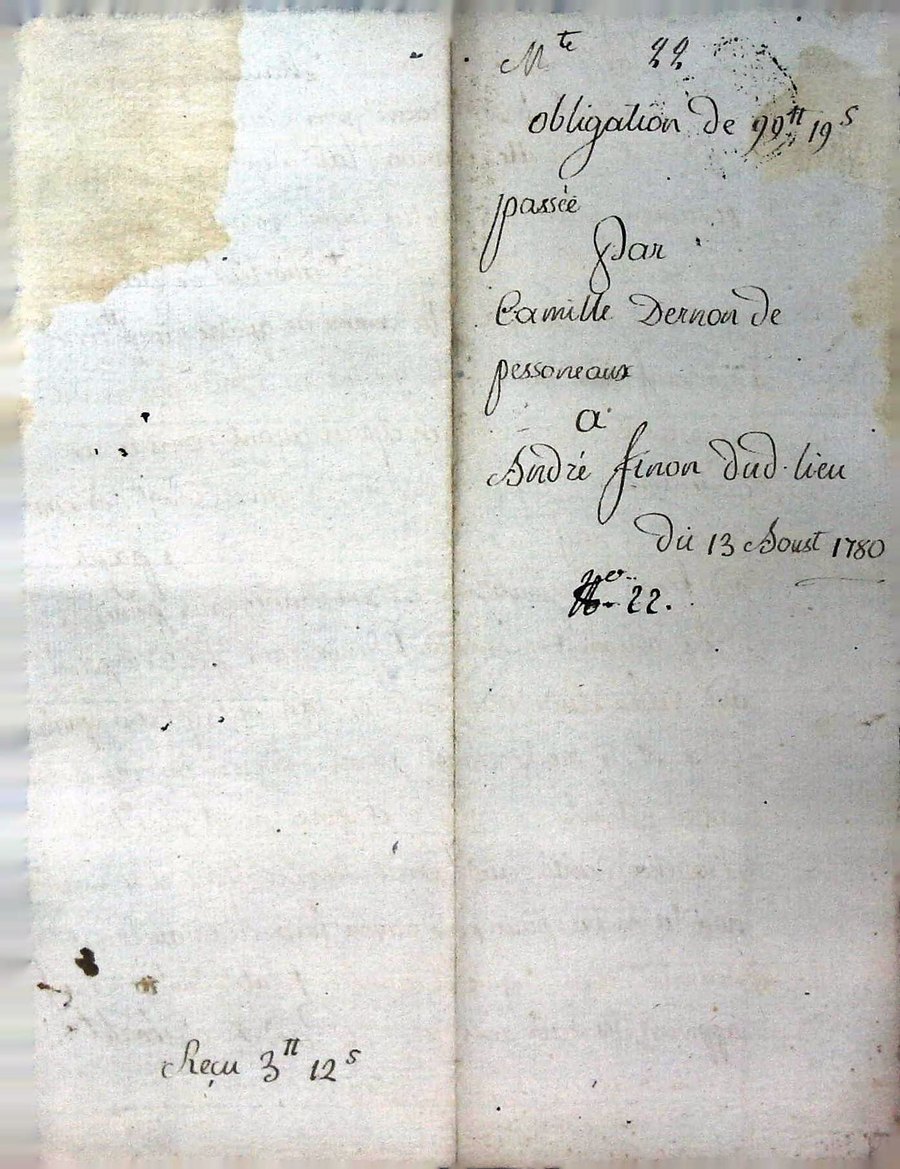 Mte 22
obligation de 99tt 19s
passée
Par
Camille Dernon de
pessoneaux
a
André finon dud. lieu
du 13 Aoust 1780
No. 22.
Reçu 3tt 12s